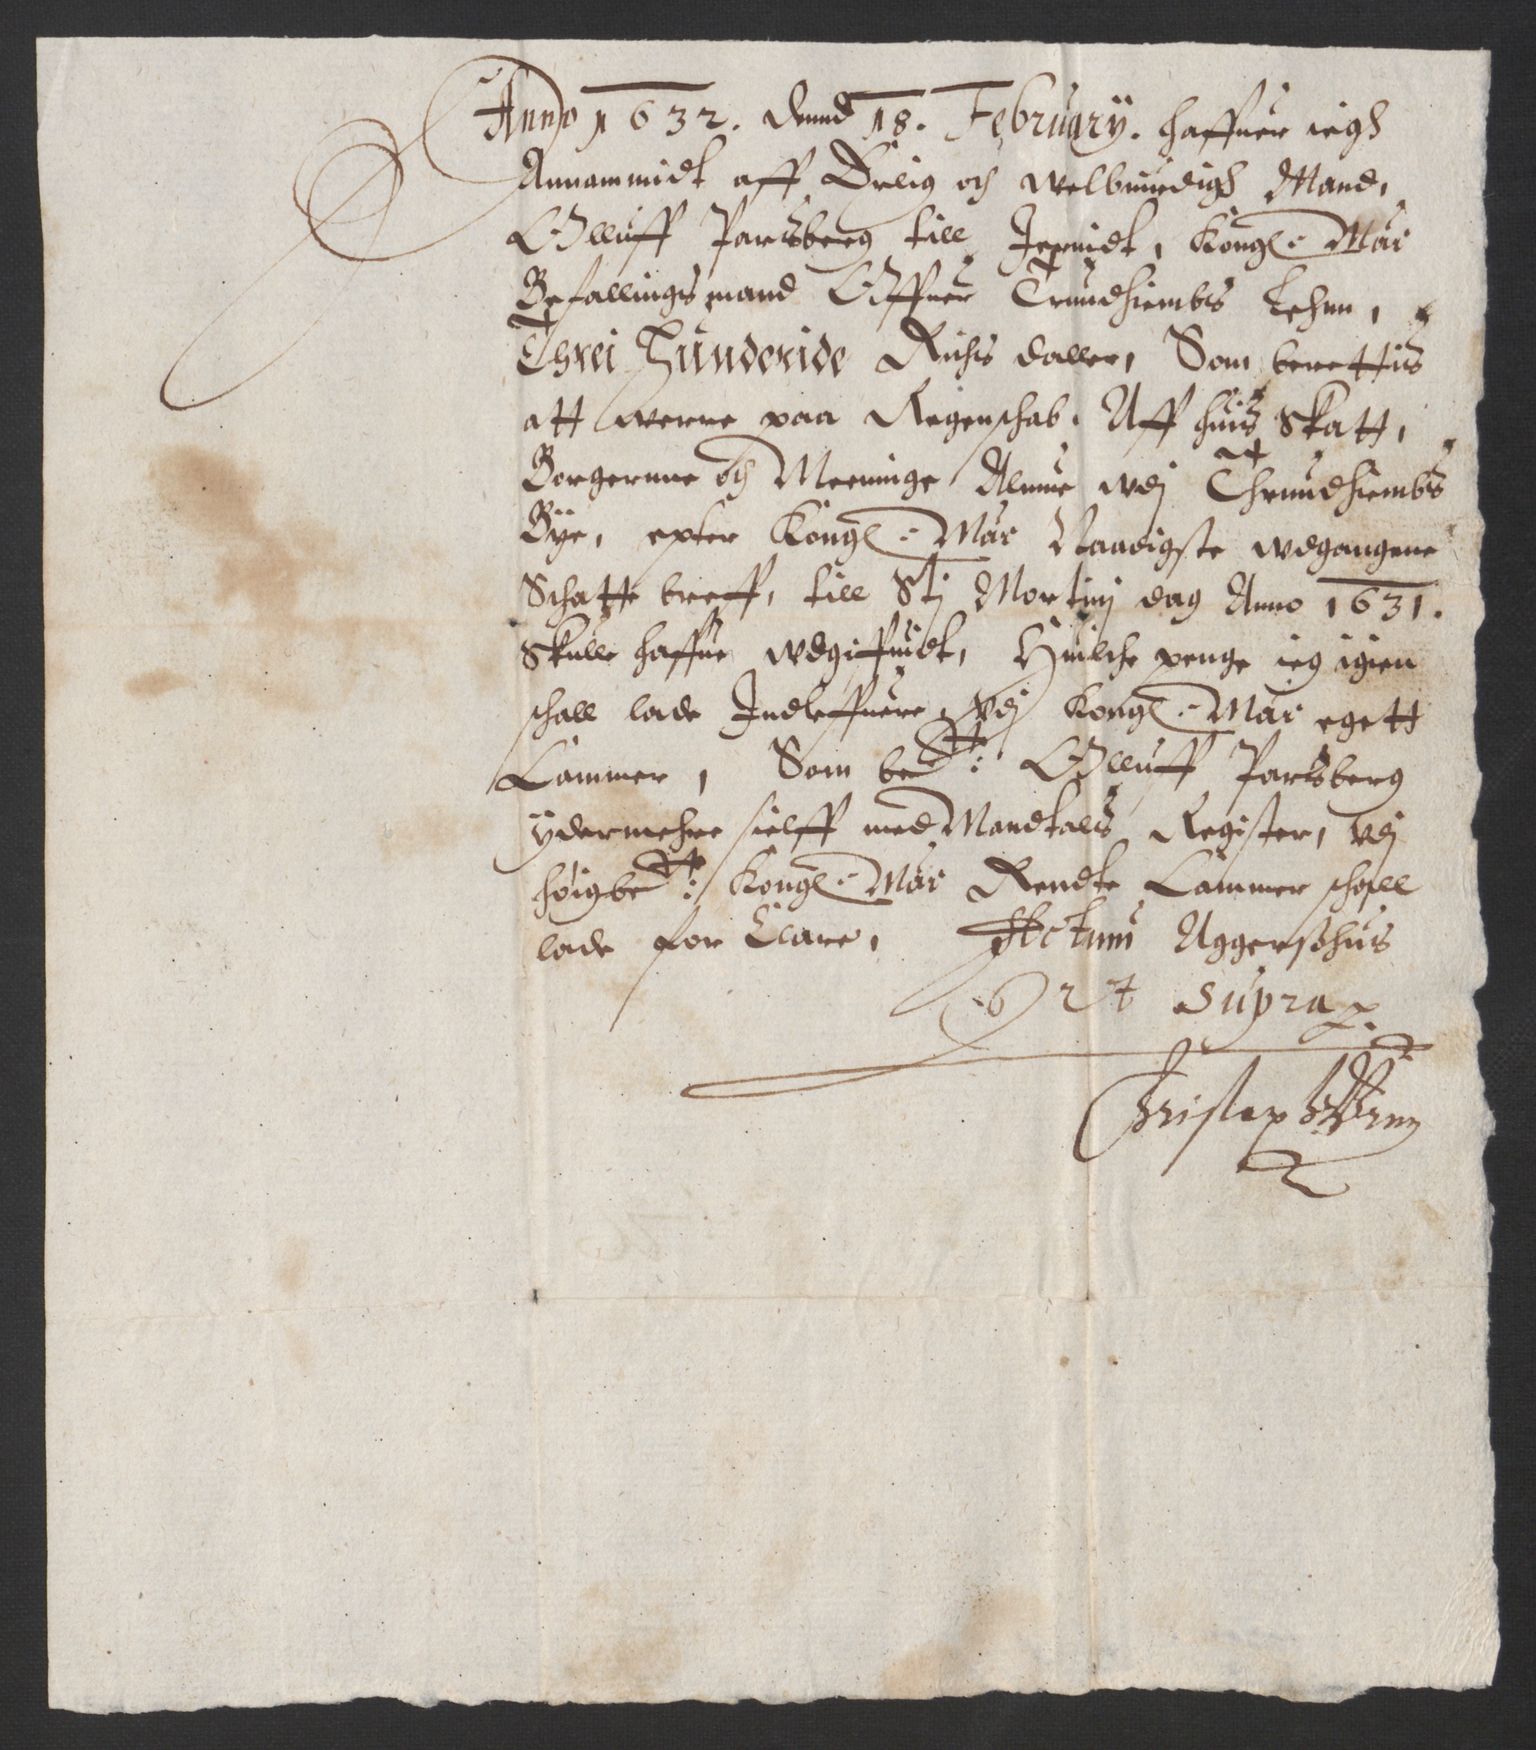 Anno 1632. dend 18. Februarÿ. haffuer iegh
Annammidt aff Erlig och welbiurdigh Mand,
Olluff Parsberg till Jernidt, Kongl: Maÿs
Befallings mand Offuer Trundhiembs Lehnn,
Threi Hunderide Richs daller, Som berettis
att werre paa Regenschab, Aff huis Skatt,
Borgernne och Meeninge Almue wdj Thrundhiembs
Bÿe, epter Kongl: Maÿs Naadigste wdgangene
Schatte breff, till Stj Mortinj dag Anno 1631.
Skulle haffue wdgiffuidt, Huilche penge ieg igien
schall lade Indleffuere, wdj Kongl: Maÿs egett
Cammer, Som bede: Olluff Parsberg
ÿdermehre sielff med Mandtals Register, vdj
høigbete: Kongl: Maÿs Rendte Cammer schall
lade for Clare, Actum Aggershus
Ut Supra
Christopher Urne